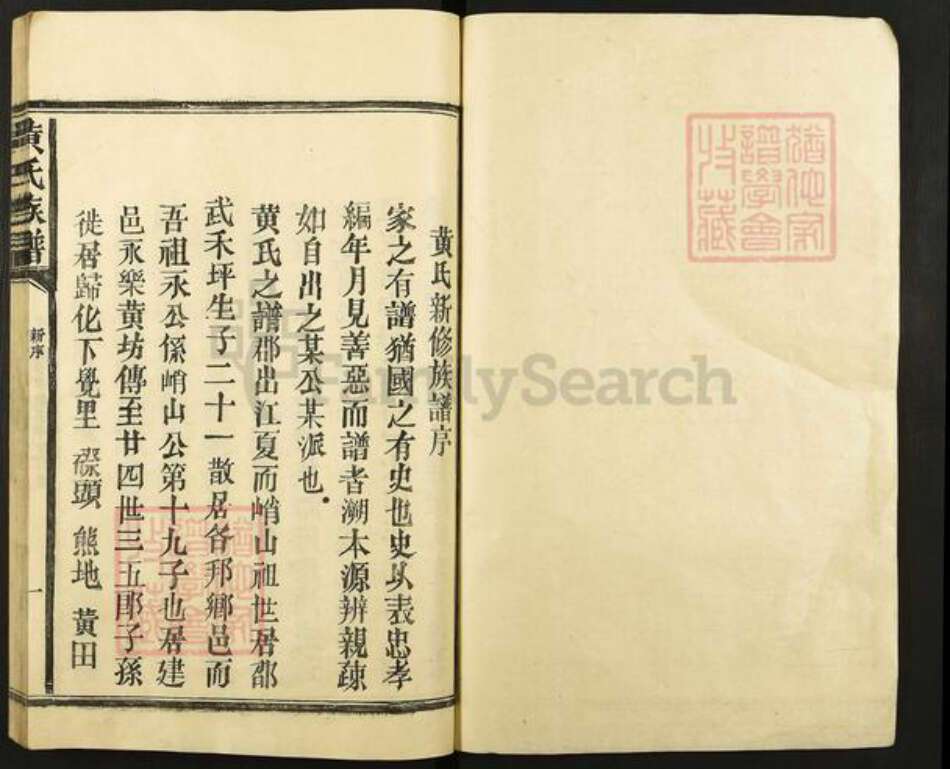 猶他家
譜學會
收藏
黄氏新修族譜序
家之有譜猶國之有史也史以表忠孝
編年月見善惡而譜者溯本源辨親疎
如自出之某公某派也
黄氏之譜郡出江夏而峭山祖世居邵
武禾坪生子二十一散居各邦鄉邑而
吾祖永公係峭山公第十九子也居建
邑永樂黄坊傳至廿四世三五郎子孫
徙居歸化下覺里 磜頭 熊地 黄田
黄氏族譜
新序
一
FamilySearch